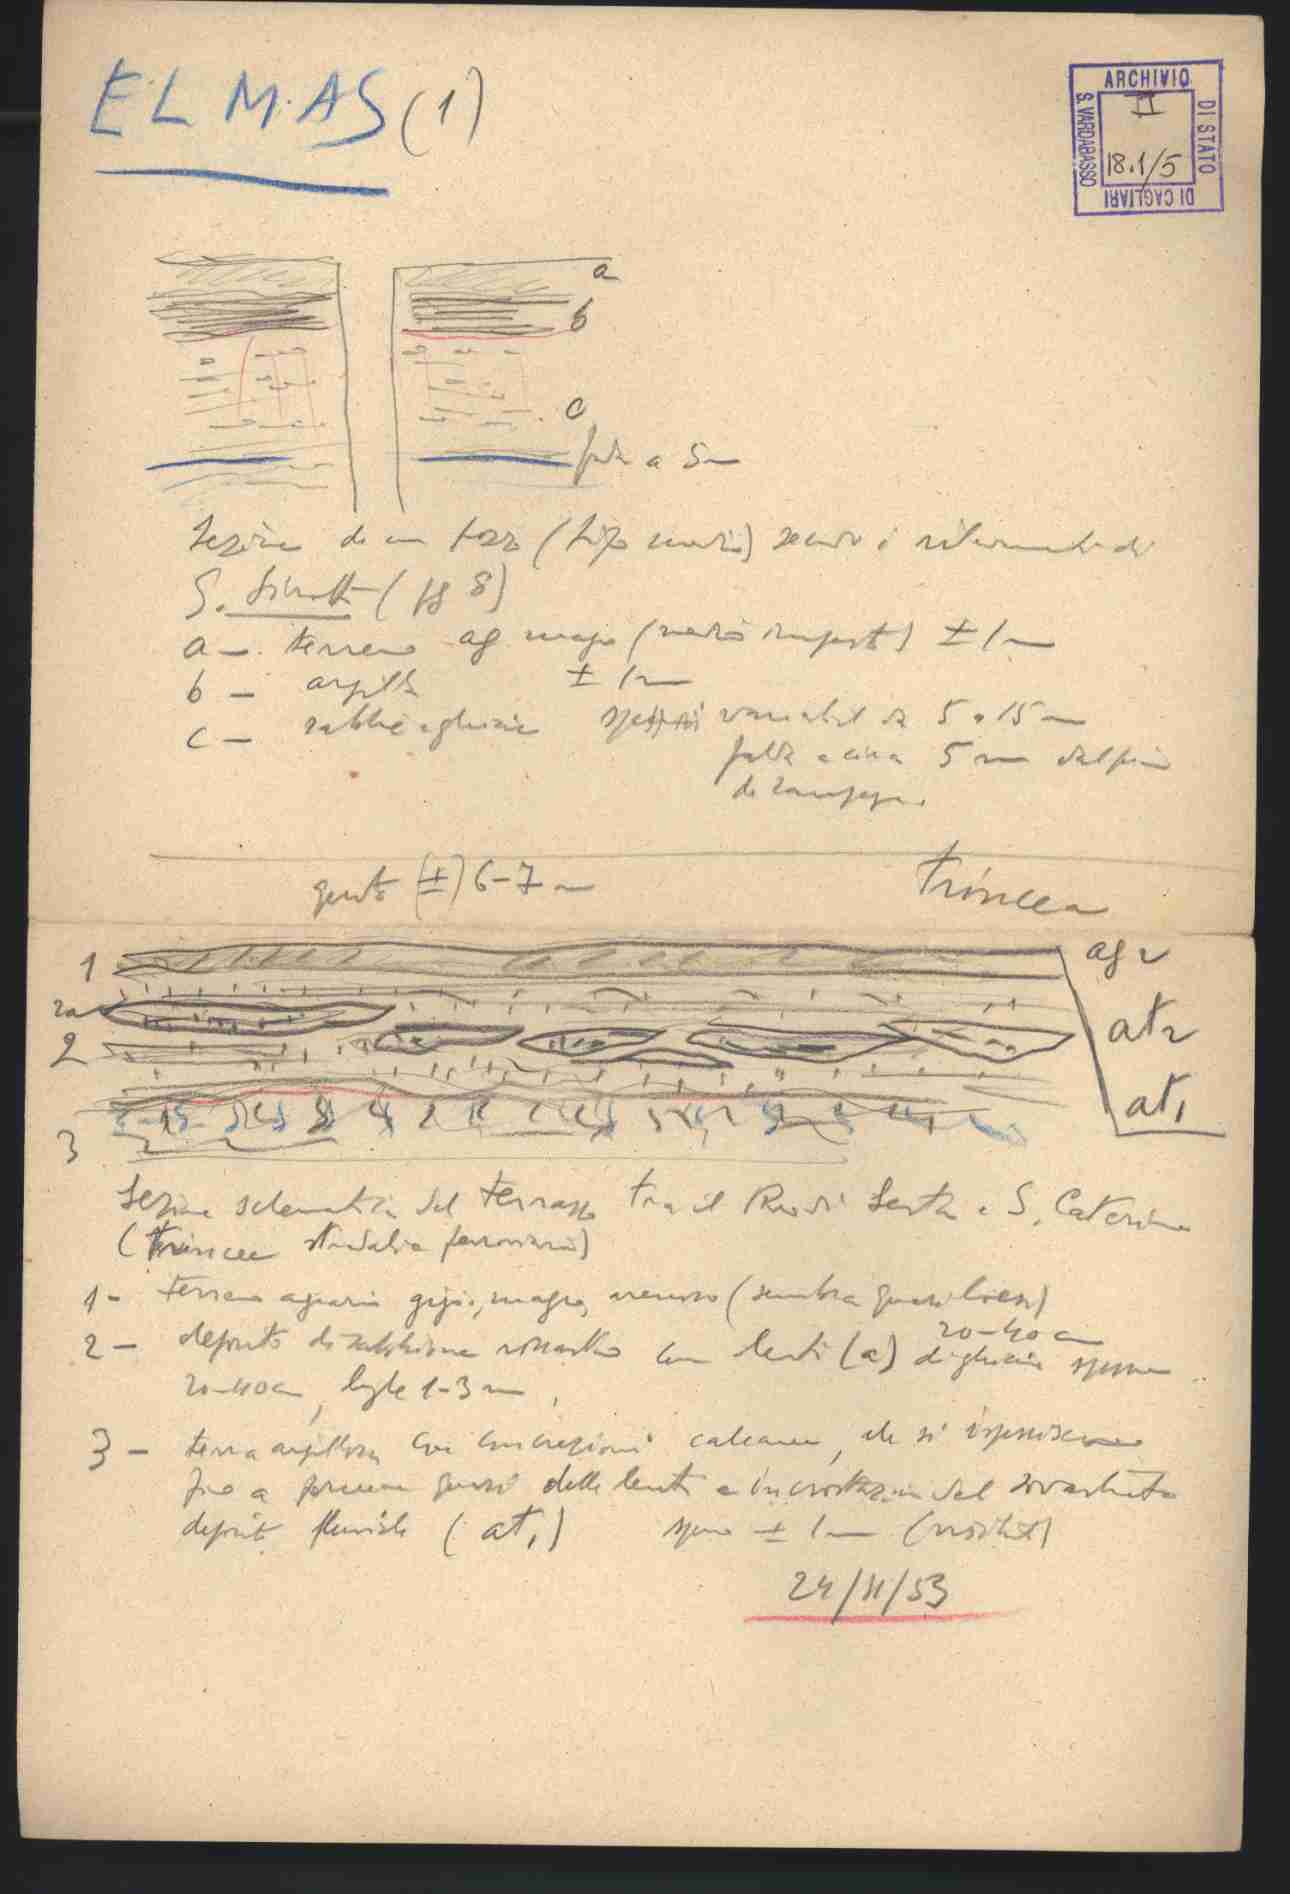 ELMAS (1)
ARCHIVIO
DI STATO
DI CAGLIARI
S. VARDABASSO
II
18.1/5
a
b
c
falda a 5 m
Sezione di un pozzo (tipo medio) secondo i rilevamenti di
S. (pg 8)
a - terreno ag. magro (medio impasto) ± 1 m
b - argilla ± 1 m
c - sabbie e ghiaie spessori variabili da 5 a 15 m
falda a circa 5 m dal piano
di campagna.
quota (±) 6-7 m
Trincea
1
ag2
2a
at2
2
at1
3
Sezione schematica del terrazzo tra il Rio di Sestu e S. Caterina
(trincee stradali e ferroviarie)
1 - terreno agrario grigio, magro, arenoso (sembra quasi loess)
20-40 cm
2 - deposito di sabbione rossastro con lenti (a) di ghiaia spesse
20-40 cm, larghe 1-3 m,
3 - terra argillosa con concrezioni calcaree, che si ispessiscono
fino a formare quasi delle lenti e incrostazioni del sovrastante
deposito fluviale (at1) spess. ± 1 m (visibile)
24/11/53